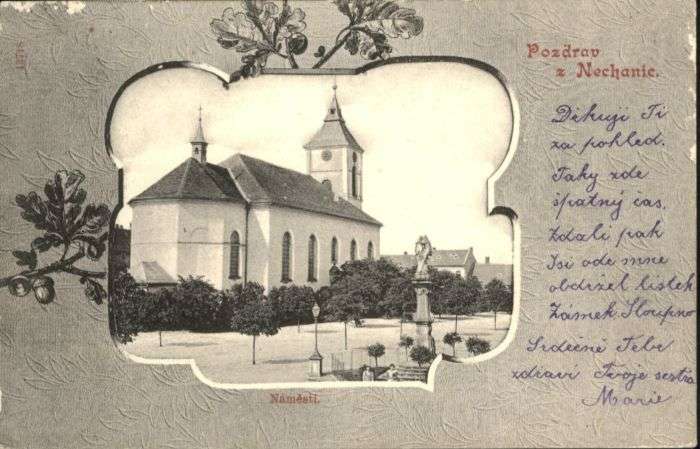 Pozdrav
z Nechanic.
Děkuji Ti
za pohled.
Taky zde
špatný čas.
Zdali pak
Jsi ode mne
obdržel lístek
Zámek Sloupno
Srdečně Tebe
zdraví Tvoje sestra
Marie
Náměstí.